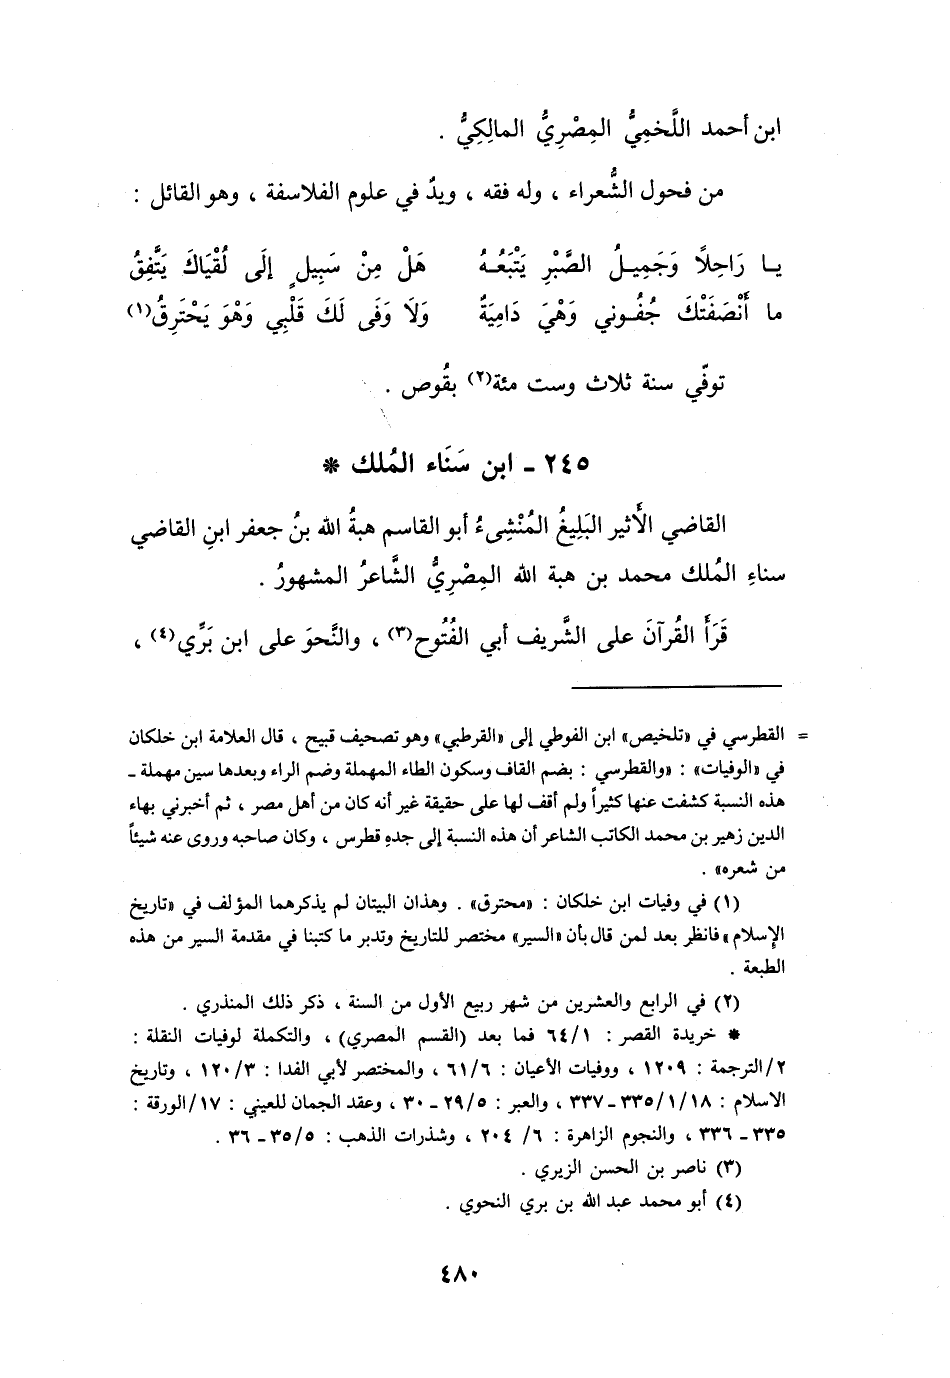 ابن أحمد اللَّخميُّ المِصْريُّ المالِكِيُّ .
من فحول الشُّعراء ، وله فقه ، ويدٌ في علوم الفلاسفة ، وهو القائل :
يـا رَاحِلاً وَجَمِيـلُ الصَّبْرِ يَتْبَعُـهُ هَلْ مِنْ سَبِيلٍ إلَى لُقْيَاكَ يَتَّفِقُ
ما أَنْصَفَتْكَ جُفُـوني وَهْيَ دَامِيَةٌ وَلَا وَفَى لَكَ قَلْبِي وَهْوَ يَحْتَرِقُ(١)
توفّي سنة ثلاث وست مئة(٢) بقُوص .
٢٤٥ - ابن سَنَاء المُلك *
القاضي الأَثير البَلِيغُ المُنْشِىءُ أبو القاسم هبةُ الله بنُ جعفر ابنِ القاضي
سناءِ المُلك محمد بن هبة الله المِصْرِيُّ الشَّاعرُ المشهورُ .
قَرَأَ القُرآنَ على الشَّريف أبي الفُتُوح(٣) ، والنَّحوَ على ابن بَرِّي(٤) ،
= القطرسي في «تلخيص» ابن الفوطي إلى «القرطبي» وهو تصحيف قبيح ، قال العلامة ابن خلكان
في «الوفيات» : «والقطرسي : بضم القاف وسكون الطاء المهملة وضم الراء وبعدها سين مهملة -
هذه النسبة كشفت عنها كثيراً ولم أقف لها على حقيقة غير أنه كان من أهل مصر ، ثم أخبرني بهاء
الدين زهير بن محمد الكاتب الشاعر أن هذه النسبة إلى جدهِ قطرس ، وكان صاحبه وروى عنه شيئاً
من شعره» .
(١) في وفيات ابن خلكان : «محترق» . وهذان البيتان لم يذكرهما المؤلف في «تاريخ
الإسلام» فانظر بعد لمن قال بأن «السير» مختصر للتاريخ وتدبر ما كتبنا في مقدمة السير من هذه
الطبعة .
(٢) في الرابع والعشرين من شهر ربيع الأول من السنة ، ذكر ذلك المنذري .
* خريدة القصر : ٦٤/١ فما بعد (القسم المصري) ، والتكملة لوفيات النقلة :
٢/الترجمة : ١٢٠٩ ، ووفيات الأعيان : ٦١/٦ ، والمختصر لأبي الفدا : ١٢٠/٣ ، وتاريخ
الاسلام : ٣٣٥/١/١٨-٣٣٧ ، والعبر : ٢٩/٥ - ٣٠ ، وعقد الجمان للعيني : ١٧/الورقة :
٣٣٥ - ٣٣٦ ، والنجوم الزاهرة : ٦/ ٢٠٤ ، وشذرات الذهب : ٣٥/٥ - ٣٦ .
(٣) ناصر بن الحسن الزيري .
(٤) أبو محمد عبد الله بن بري النحوي .
٤٨٠